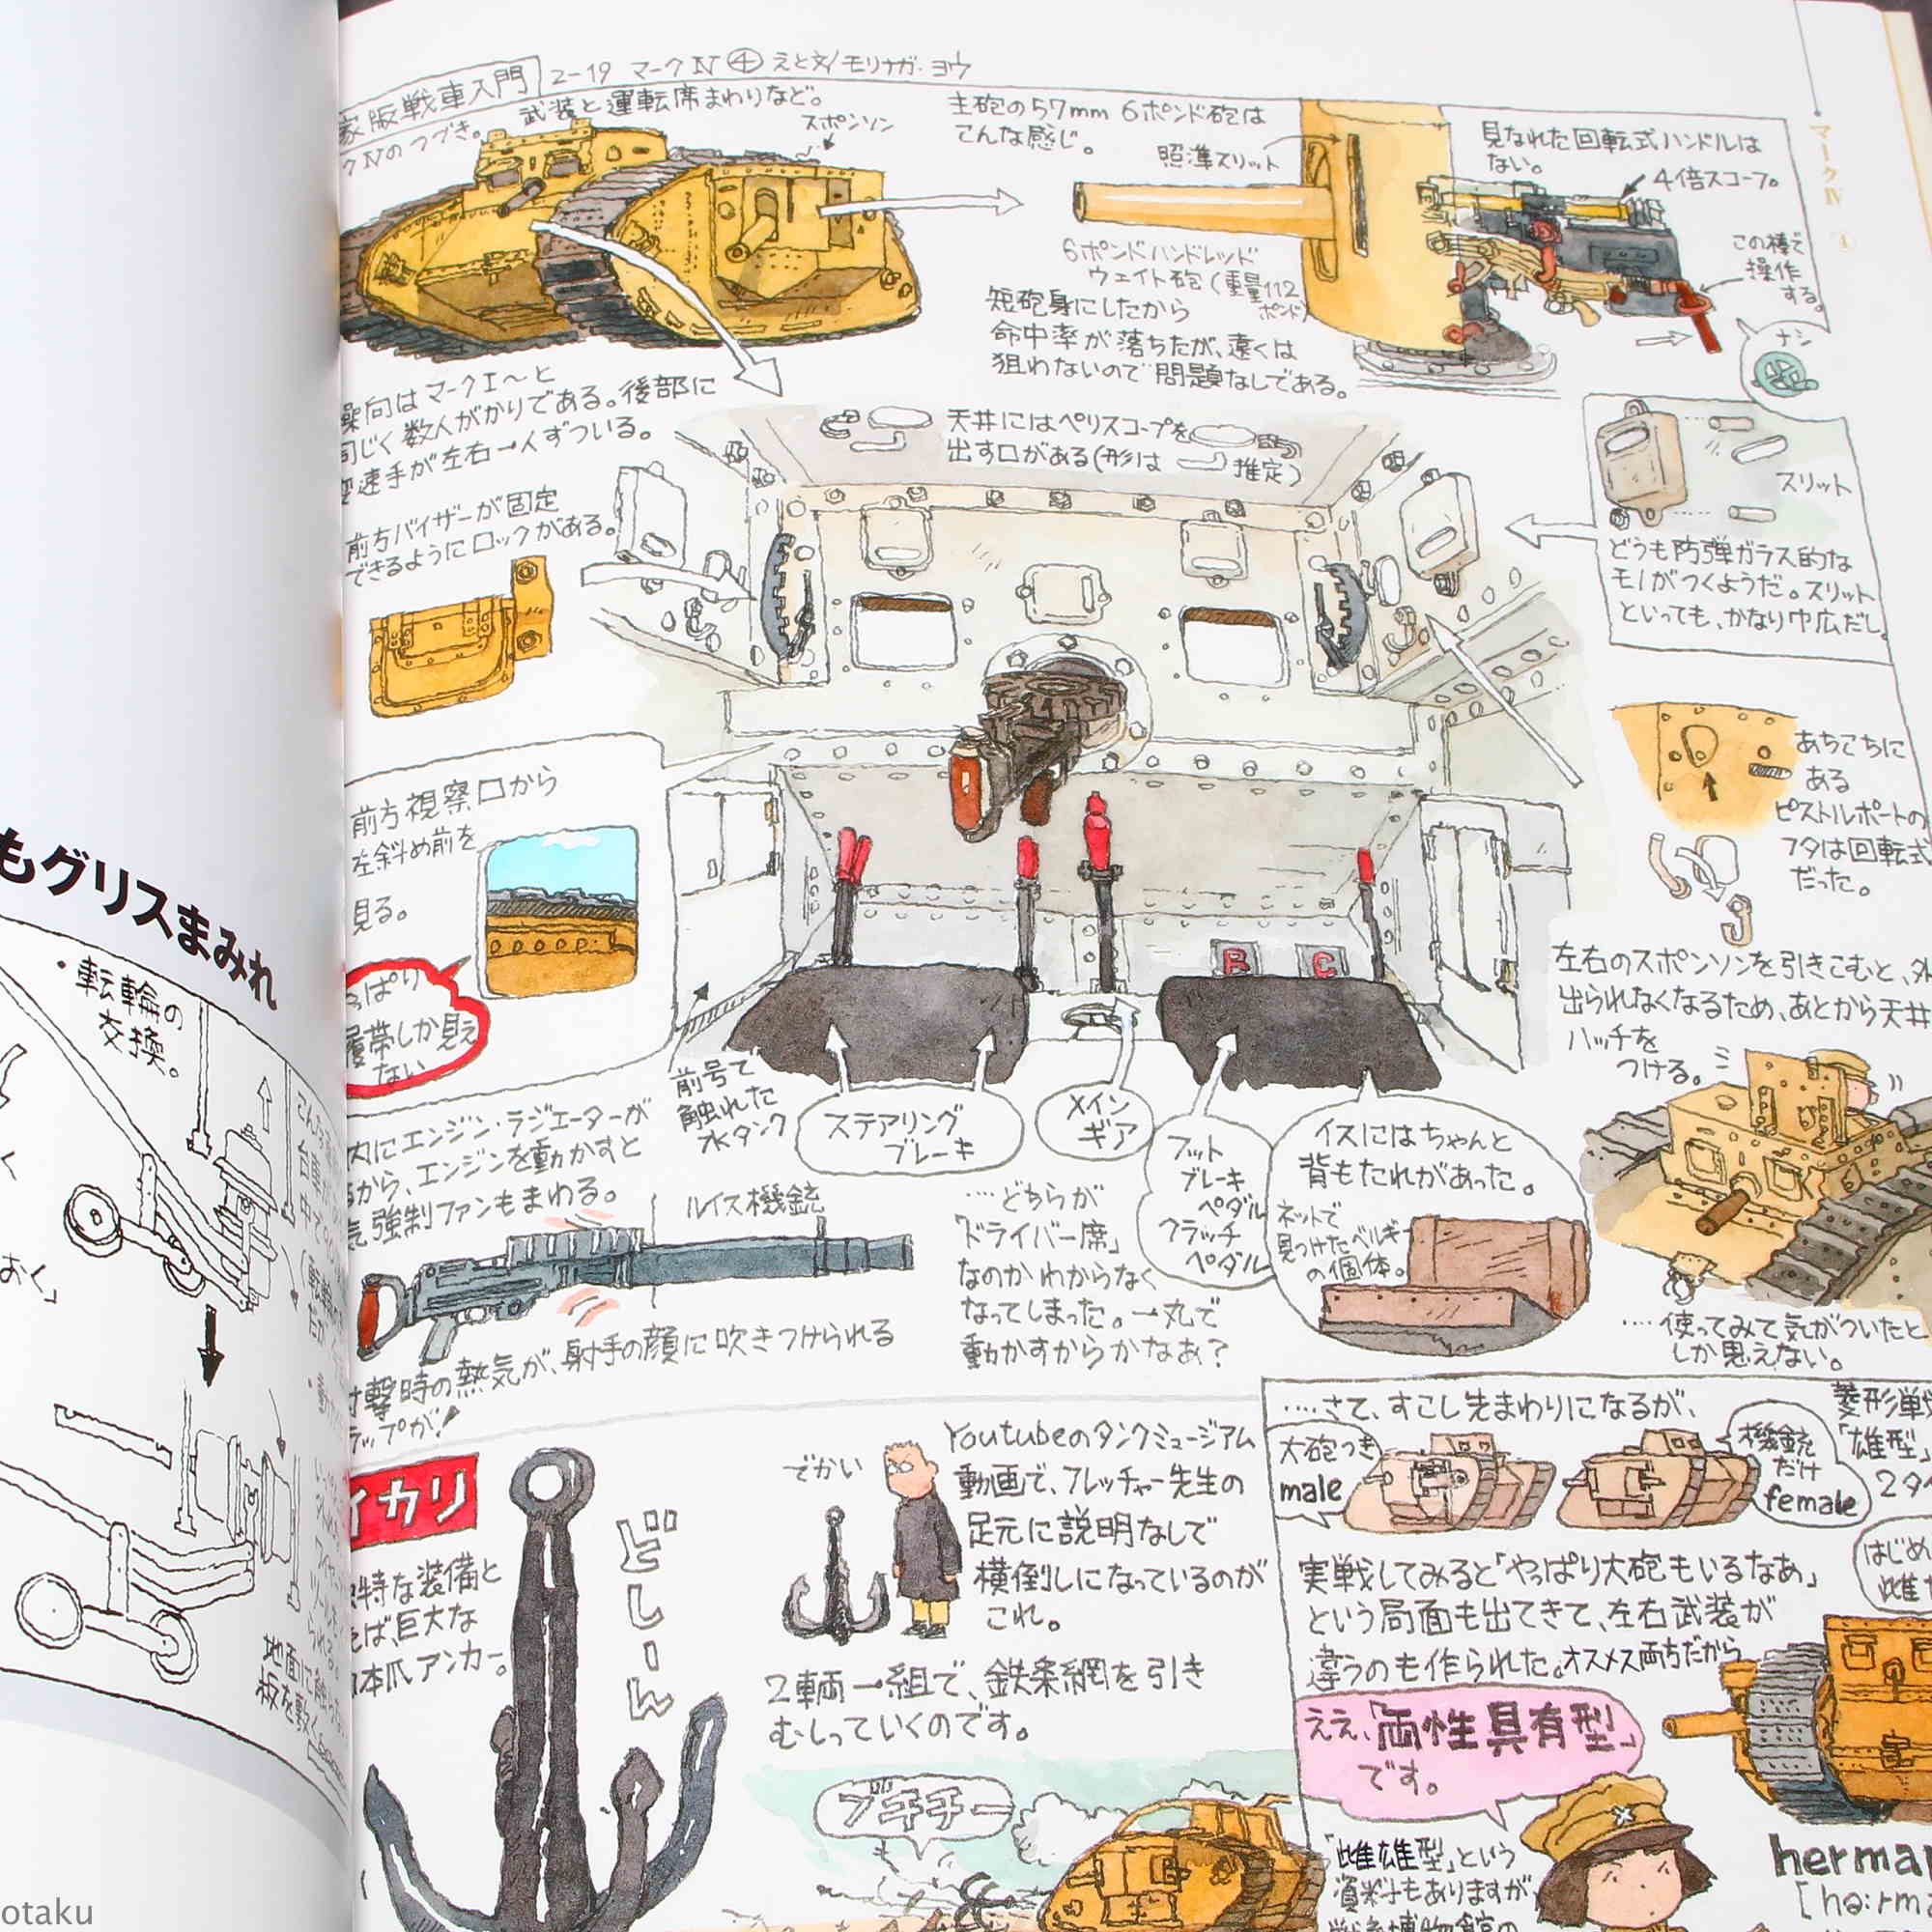 家版戦車入門 2-19 マークⅣ ④ えと文/モリナガ・ヨウ
クⅣのつづき。 武装と運転席まわりなど。
スポンソン
主砲の57mm 6ポンド砲は
こんな感じ。
照準スリット
見なれた回転式ハンドルは
ない。
4倍スコープ。
この棒で
操作
する。
ナシ
6ポンドハンドレッド
ウェイト砲(重量112
ポンド)
短砲身にしたから
命中率が落ちたが、遠くは
狙わないので問題なしである。
マークⅣ 4
操向はマークⅠ〜と
同じく数人がかりである。後部に
変速手が左右一人ずついる。
前方バイザーが固定
できるようにロックがある。
天井にはペリスコープを
出す口がある(形は 推定)
スリット
どうも防弾ガラス的な
モノがつくようだ。スリット
といっても、かなり巾広だし。
あちこちに
ある
ピストルポートの
フタは回転式
だった。
前方視察口から
左斜め前を
見る。
っぱり
履帯しか見え
ない
B
C
前号で
触れた
水タンク
ステアリング
ブレーキ
メイン
ギア
フット
ブレーキ
ペダル
クラッチ
ペダル
イスにはちゃんと
背もたれがあった。
ネットで
見つけたベルギー
の個体。
左右のスポンソンを引きこむと、外
出られなくなるため、あとから天井
ハッチを
つける。
‥‥使ってみて気がついたと
しか思えない。
内にエンジン・ラジエーターが
から、エンジンを動かすと
気強制ファンもまわる。
ルイス機銃
射撃時の熱気が、射手の顔に吹きつけられる
ラップが!
‥‥どちらが
「ドライバー席」
なのかわからなく
なってしまった。一丸で
動かすからかなぁ?
イカリ
特な装備と
えば、巨大な
本爪アンカー。
どしーん
でかい
Youtubeのタンクミュージアム
動画で、フレッチャー先生の
足元に説明なしで
横倒しになっているのが
これ。
2輌一組で、鉄条網を引き
むしっていくのです。
ブチチー
‥‥さて、すこし先まわりになるが、
菱形戦
「雄型」
2タ
大砲つき
male
機銃
だけ
female
はじめ
雌
実戦してみると「やっぱり大砲もいるなあ」
という局面も出てきて、左右武装が
違うのも作られた。オスメス両方だから
ええ、「両性具有型」
です。
「雌雄型」という
資料もありますが
戦車博物館の
herma
[hə:rm
もグリスまみれ
・転輪の
交換。
く
おく」
台車
地面に触れ
板を敷く。
otaku